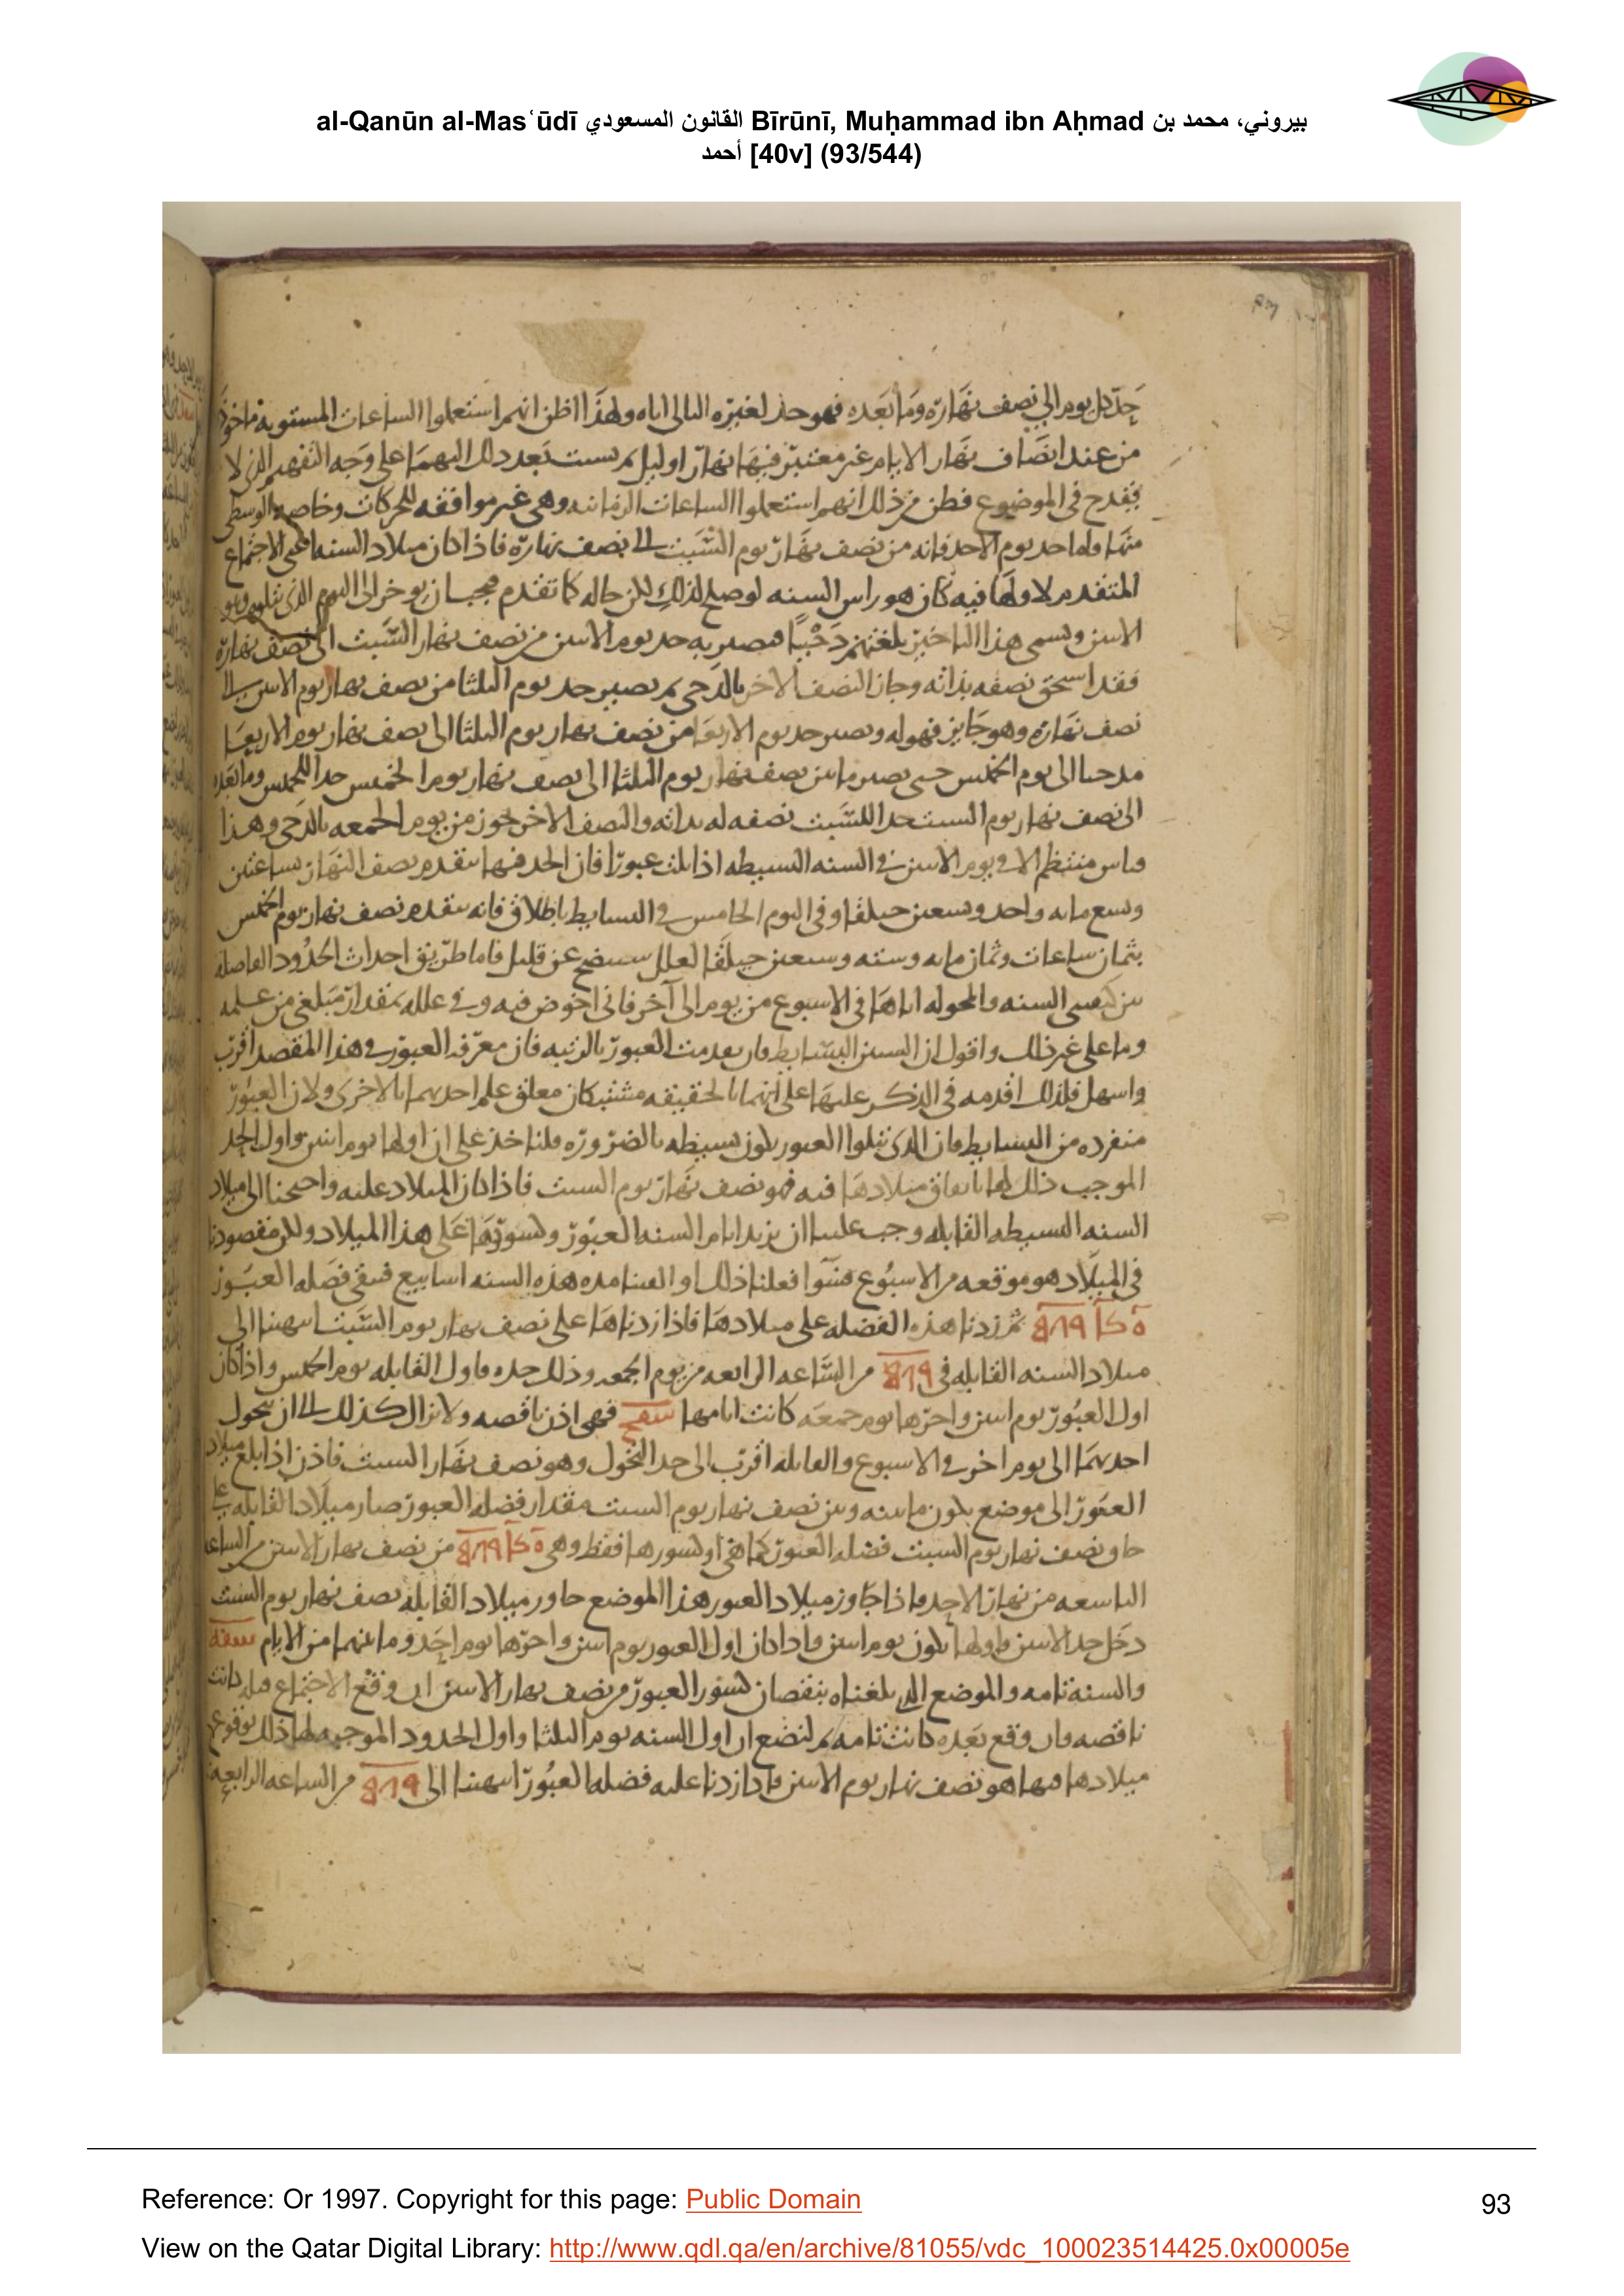 al-Qanūn al-Masʿūdī القانون المسعودي Bīrūnī, Muḥammad ibn Aḥmad بيروني، محمد بن
أحمد [40v] (93/544)
حد كل يوم الى نصف نهاره وما بعده فهو حد لغيره التالى اياه ولهذا اظن انهم استعملوا الساعات المستوية ماخوذة
من عند انصاف نهار الايام غير معتبر فيها نهار او ليل ثم نسبت بعد ذلك اليهما على وجه التفهيم الذى لا
يقدح فى الموضوع فظن من ذلك انهم استعملوا الساعات الزمانيه وهى غير موافقه للحركات وخاصه الوسطى
منها واما حد يوم الاحد فانه من نصف نهار يوم السبت الى نصف نهاره فاذا كان ميلاد السنه اعنى الاجتماع
المتقدم لاولها فيه كان هو راس السنه لو صلح لذلك لكن حاله كما تقدم فيجب ان يوخر الى اليوم الذى يتلوه وهو
الاثنين ويسمى هذا التاخير بلغتهم دحيا فيصير به حد يوم الاثنين من نصف نهار السبت الى نصف نهاره
فقد استحق نصفه بذاته وحاز النصف الاخر بالدحى ثم يصير حد يوم الثلثا من نصف نهار يوم الاثنين الى
نصف نهاره وهو جايز فهو له ويصير حد يوم الاربعا من نصف نهار يوم الثلثا الى نصف نهار يوم الاربعا
مدحيا الى يوم الخميس حتى يصير ما بين نصف نهار يوم الثلثا الى نصف نهار يوم الخميس حدا للخميس وما بعده
الى نصف نهار يوم السبت حدا للسبت نصفه له بذاته والنصف الاخر محوز من يوم الجمعه بالدحى وهذا
قياس منتظم الا فى يوم الاثنين فى السنه البسيطه اذا تلت عبورا فان الحد فيها يتقدم نصف النهار بساعتين
وتسع مايه واحد وتسعين حيلقا وفى اليوم الخامس فى البسايط باطلاق فانه يتقدم نصف نهار يوم الخميس
بثمان ساعات وثمان مايه وسته وسبعين حيلقا لعلل ستتضح عن قليل فاما طريق احداث الحدود الفاصله
بين كيفيتى السنه والمحوله اياها فى الاسبوع من يوم الى آخر فانى اخوض فيه وفى علله بمقدار مبلغى من علمه
وما على غير ذلك واقول ان السنين البسايط وان تقدمت العبور بالرتبه فان معرفه العبور فى هذا المقصد اقرب
واسهل فلذلك اقدمه فى الذكر عليها على انهما بالحقيقه مشتبكان معلق علم احديهما بالاخرى ولان العبور
منفرده من البسايط فان التى تتلوا العبور تكون بسيطه بالضروره فلناخذ على ان اولها يوم اثنين واول الحد
الموجب ذلك لها باتفاق ميلادها فيه فهو نصف نهار يوم السبت فاذا كان الميلاد عليه واحتجنا الى ميلاد
السنه البسيطه القابله وجب علينا ان نزيد ايام السنه العبور وكسورها على هذا الميلاد ولكن مقصودنا
فى الميلاد هو موقعه من الاسبوع فسوا فعلنا ذلك او القينا مده هذه السنه اسابيع فتبقى فضله العبور
ثم زدنا هذه الفضله على ميلادها فاذا زدناها على نصف نهار يوم السبت انتهينا الى
ميلاد السنه القابله فى من الساعه الرابعه من يوم الجمعه وذلك حده فاول القابله يوم الخميس واذا كان
اول العبور يوم اثنين واخرها يوم جمعه كانت ايامها شفج فهى اذن ناقصه ولا تزال كذلك الى ان يتحول
احديهما الى يوم اخر فى الاسبوع والقابله اقرب الى حد التحول وهو نصف نهار السبت فاذن اذا بلغ ميلاد
العبور الى موضع يكون ما بينه وبين نصف نهار يوم السبت مقدار فضله العبور صار ميلاد القابله على
نصف نهار يوم السبت فضله العبور كما هى او كسورها فقط وهى من نصف نهار الاثنين من الساعه
التاسعه من نهار الاحد فاذا جاوز ميلاد العبور هذا الموضع جاوز ميلاد القابله نصف نهار يوم السبت
دخل حد الاثنين واولها يكون يوم اثنين واذا كان اول العبور يوم اثنين واخرها يوم احد وما بينهما من الايام شفه
والسنة تامه والموضع الذى بلغناه بنقصان كسور العبور من نصف نهار الاثنين ان وقع الاجتماع قبله كانت
ناقصه وان وقع بعده كانت تامه ثم لنضع ان اول السنه يوم الثلثا واول الحدود الموجبه لها ذلك بوقوع
ميلادها فيها هو نصف نهار يوم الاثنين فاذا زدنا عليه فضله العبور انتهينا الى من الساعه الرابعه
Reference: Or 1997. Copyright for this page: Public Domain
93
View on the Qatar Digital Library: http://www.qdl.qa/en/archive/81055/vdc_100023514425.0x00005e